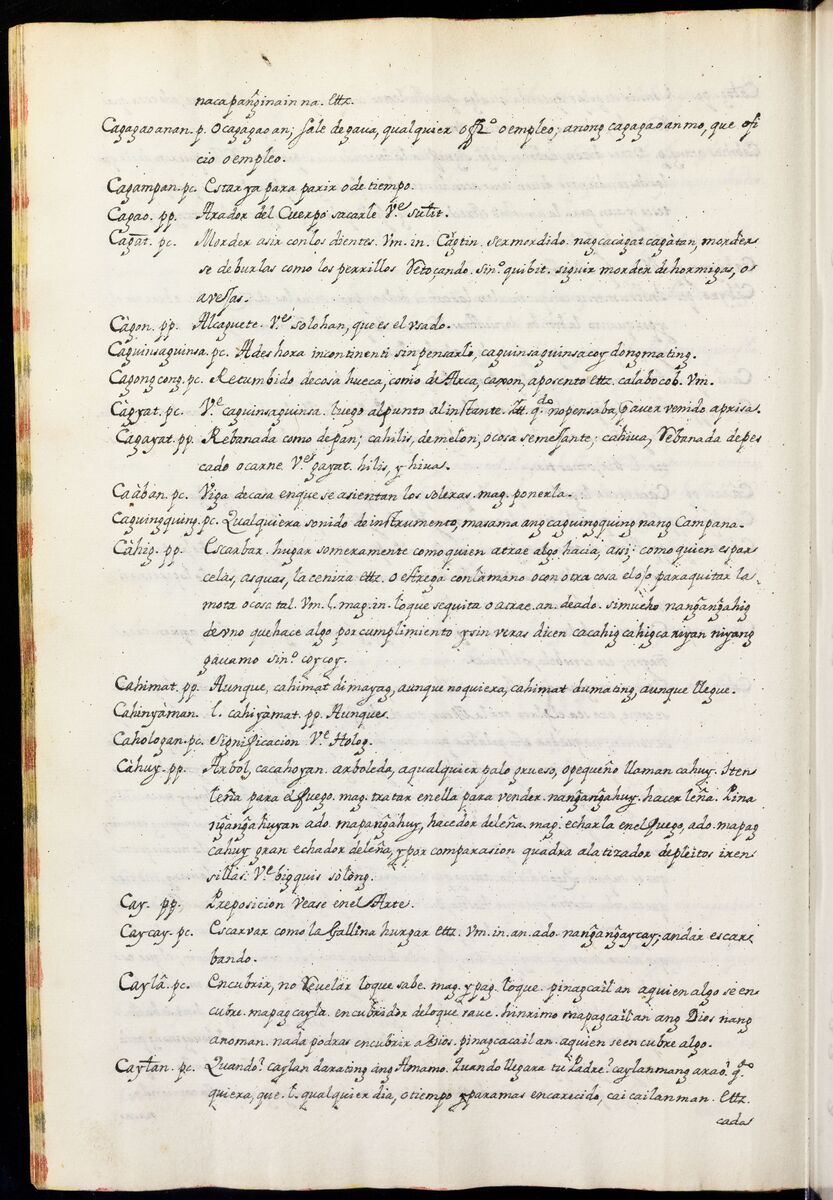 nacapang̃inain na. ettz.
Cagagaoanan. p. Ocagagaoan; sale de gaua, qualquier offi.º o empleo; anong cagagaoan mo, que ofi
cio o empleo.
Cagampan. pc. Estar ya para parir o de tiempo.
Cagao. pp. Arador del Cuerpo sacarle V.e
Cagat. pc. Morder asir con los dientes. Vm. in. Cagtin. ser mordido. nagcacàgat cagàtan, morder
se de burlas como los perrillos sin.º quibit. siguir morder de hormigas, o
avejas.
Càgon. pp. Alcaguete. V.e solohan, que es el vsado.
Caguinsaguinsa. pc. A deshora incontinenti sin pensarlo, caguinsaguinsa coy dongmating.
Cagongcong. pc. Retumbido de cosa hueca, como de Arca, caxon, aposento ettz. calabocob. Vm.
Càgyat. pc. V.e caguinsaguinsa. luego al punto al instante. q.do no pensaba, aver venido aprisa.
Cagayat. pp. Rebanada como de pan; cahilis, de melon, o cosa semejante; cahiua, Rebanada de pes
cado o carne V.e gayat. hilis, y hiuas.
Caàban. pc. Viga de casa en que se asientan los soleras. mag. ponerla.
Caguingquing. pc. Qualquiera sonido de instrumento, masama ang caguingquing nang Campana.
Càhig. pp. Escarbar. hugar someramente como quien atrae algo hacia, assi; como quien espar
celas, asquas, la ceniza ettz. o estrega con la mano o con otra cosa el ojo para quitar la
mota o cosa tal. Vm. l. mag. in. lo que se quita o atrae. an. deado. si mucho nang̃ang̃ahig
de vno que hace algo por cumplimiento y sin veras dicen cacahig cahig ca riyan niyang
gàua mo sin.º coycoy.
Cahimat. pp. Aunque, cahimat di mayag, aunque no quiera, cahimat dumating, aunque llegue.
Cahinyàman. l. cahiyàmat. pp. Aunques.
Cahologan. pc. Significacion V.e Holog.
Càhuy. pp. Arbol, cacahoyan. arboleda, a qualquier palo grueso, o pequeño llaman cahuy. Iten
leña para el fuego. mag. tratar en ella para vender. nang̃ang̃ahuy. hacer leña. Pina
ng̃ang̃ahuyan ado. mapang̃ahuy, hacedor de leña. mag. echarla en el fuego, ado. mapag
cahuy gran echador de leña, y por comparasion quadra al atizador de pleitos iren
sillas. V.e bigquis solong.
Cay. pp. Preposicion Vease en el Arte.
Caycay. pc. Escarvar como la Gallina hurgar ettz. Vm. in. an. ado. nang̃ang̃aycay; andar escar
bando.
Caylâ. pc. Encubrir, no Revelar lo que sabe. mag. y pag. lo que. pinagcailan a quien algo se en
cubre. mapagcayla. encubridor de lo que saue. hinrimo mapagcailan ang Dios nang
anoman. nada podras encubrir a Dios. pinagcacailan. a quien se encubre algo.
Caylan. pc. Quando? caylan darating ang Amamo. Quando llegara tu Padre? caylanmang arao? q.do
quiera, que l. qualquier dia, o tiempo y para mas encarecido, cai cailanman. ettz.
cadas